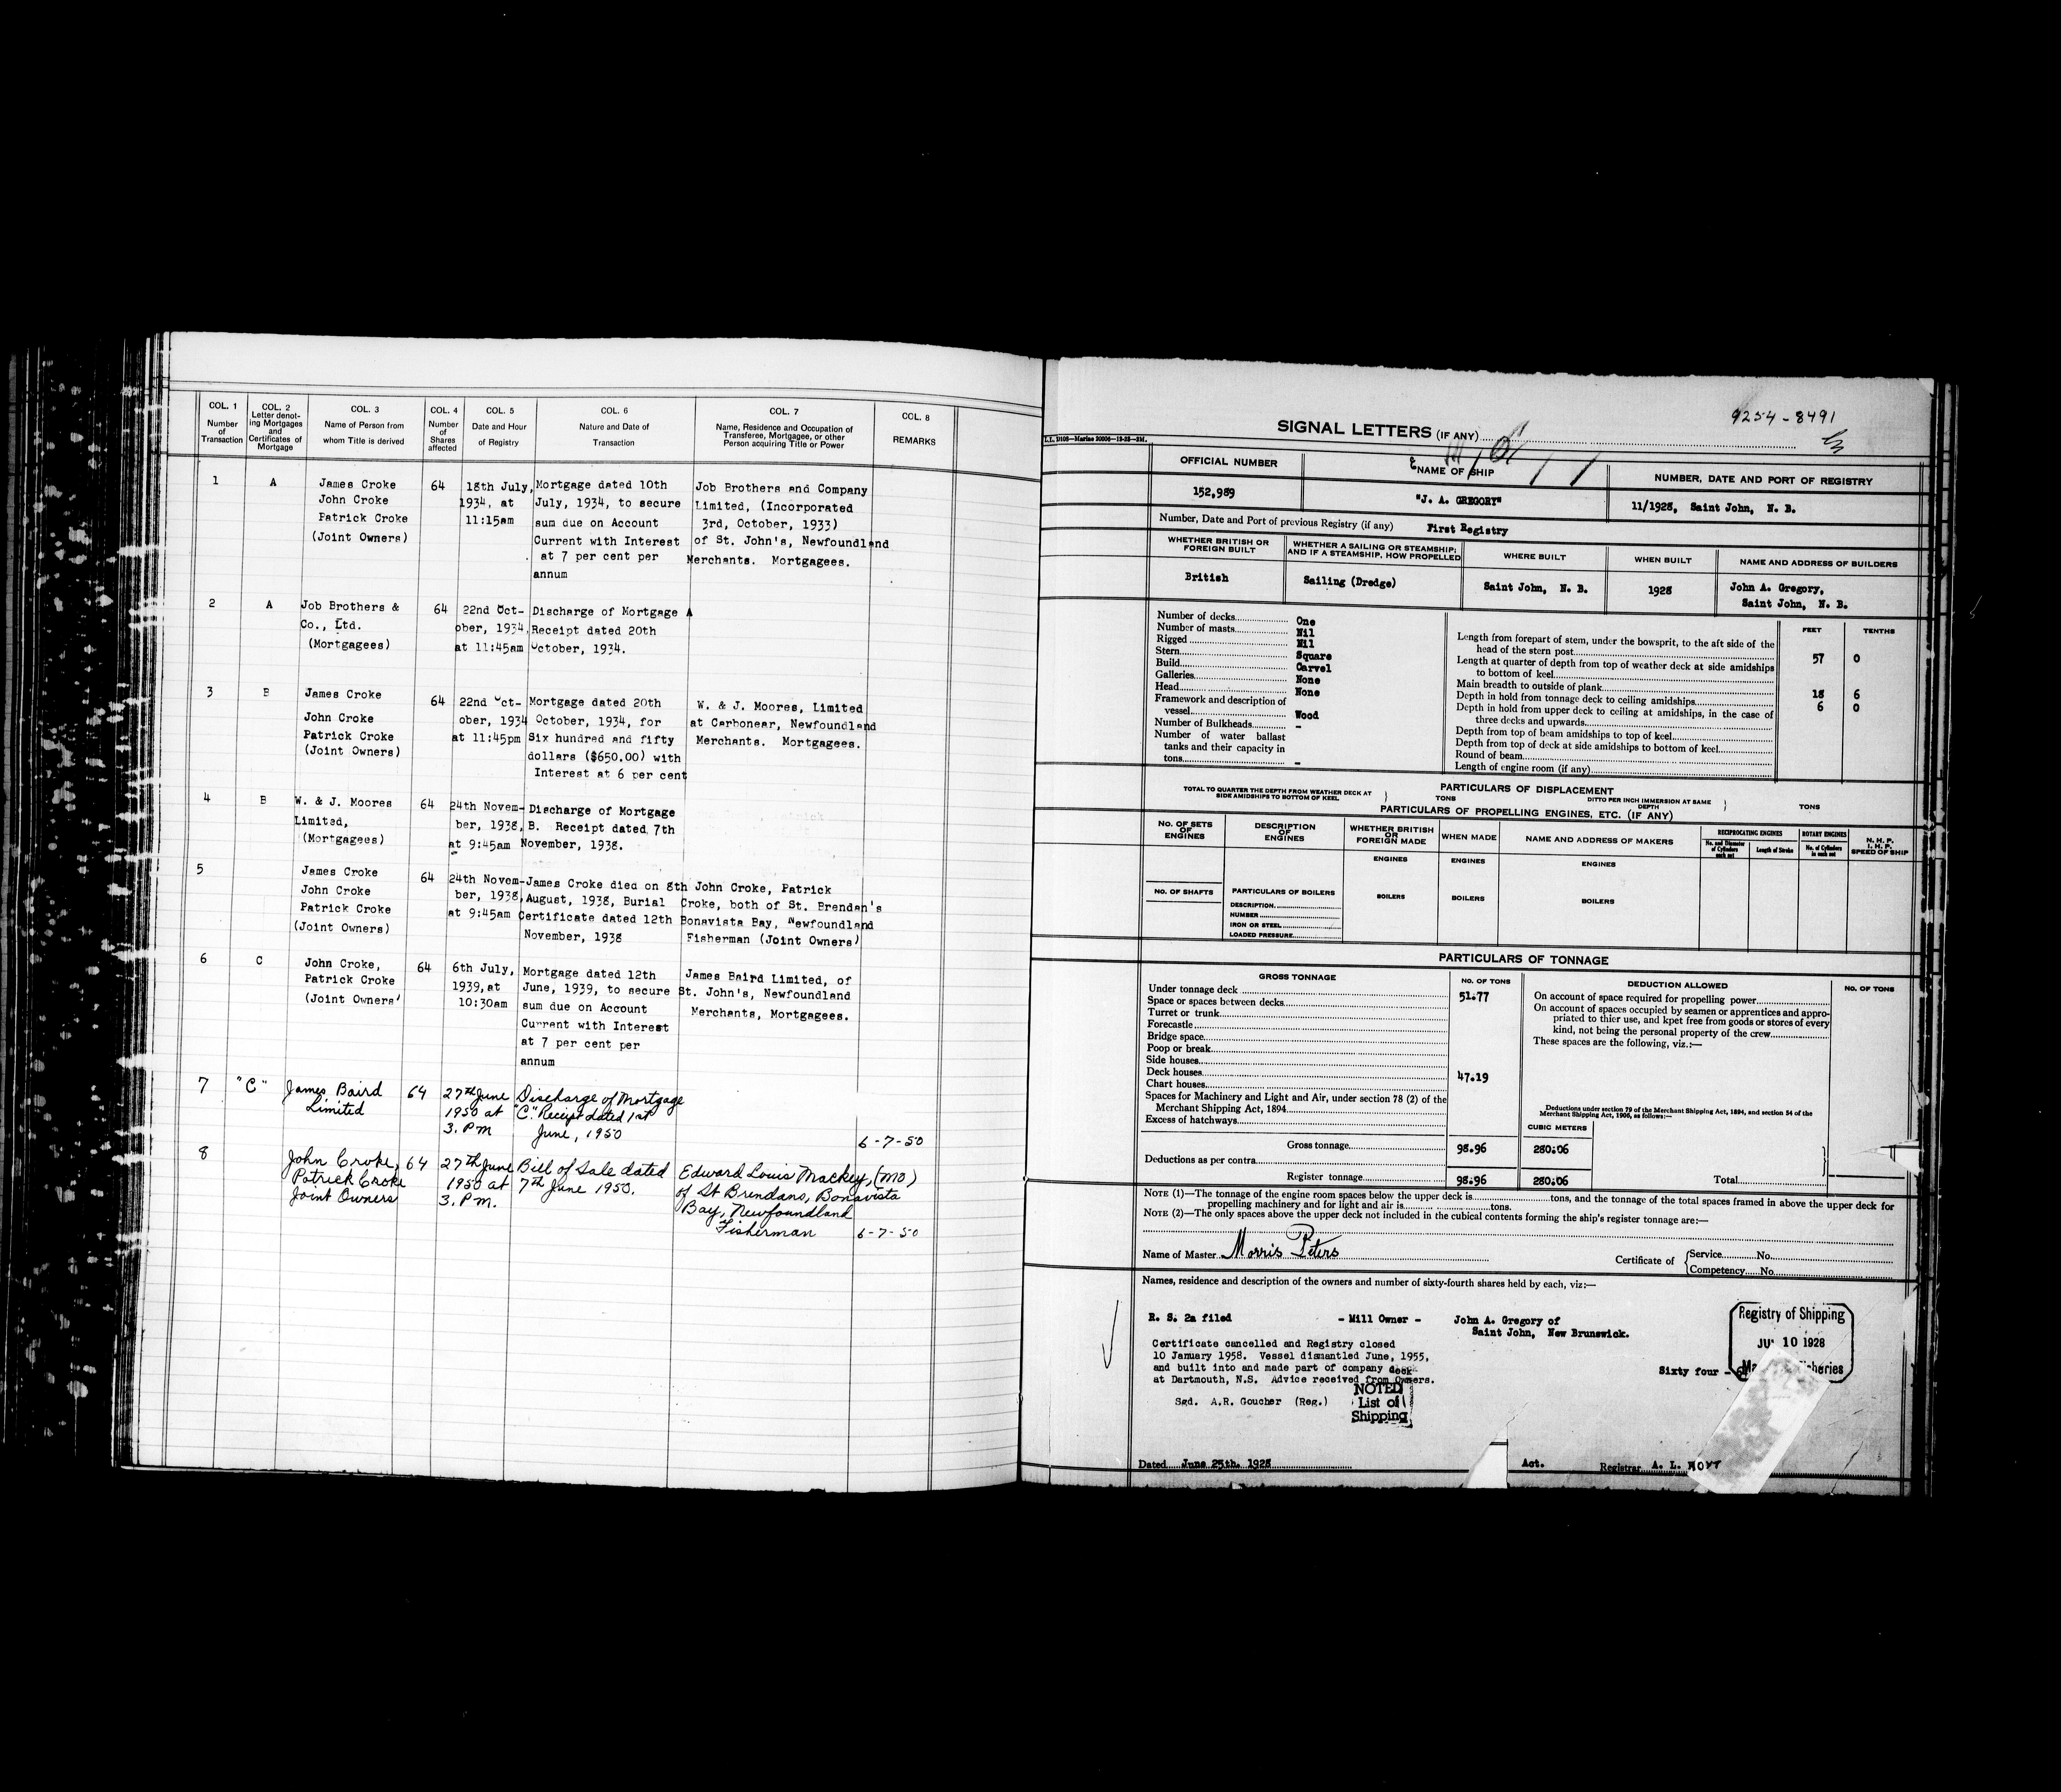 COL. 1 Number of Transaction
COL. 2 Letter denot- ing Mortgages and Certificates of Mortgage
COL. 3 Name of Person from whom Title is derived
COL. 4 Number of Shares affected
COL. 5 Date and Hour of Registry
COL. 6 Nature and Date of Transaction
COL. 7 Name, Residence and Occupation of Transferee, Mortgagee, or other Person acquiring Title or Power
COL. 8 REMARKS
1 A James Croke 64 18th July, Mortgage dated 10th Job Brothers and Company
John Croke 1934, at July, 1934, to secure Limited, (Incorporated
Patrick Croke 11:15am sum due on Account 3rd, October, 1933)
(Joint Owners) Current with Interest of St. John's, Newfoundland
at 7 per cent per Merchants. Mortgagees.
annum
2 A Job Brothers & 64 22nd Oct- Discharge of Mortgage A
Co., Ltd. ober, 1934, Receipt dated 20th
(Mortgagees) at 11:45am October, 1934.
3 B James Croke 64 22nd Oct- Mortgage dated 20th W. & J. Moores, Limited
John Croke ober, 1934 October, 1934, for at Carbonear, Newfoundland
Patrick Croke at 11:45pm Six hundred and fifty Merchants. Mortgagees.
(Joint Owners) dollars ($650.00) with
Interest at 6 per cent
4 B W. & J. Moores 64 24th Novem- Discharge of Mortgage
Limited, ber, 1938, B. Receipt dated 7th
(Mortgagees) at 9:45am November, 1938.
5 James Croke 64 24th Novem- James Croke died on 8th John Croke, Patrick
John Croke ber, 1938, August, 1938, Burial Croke, both of St. Brendan's
Patrick Croke at 9:45am Certificate dated 12th Bonavista Bay, Newfoundland
(Joint Owners) November, 1938 Fisherman (Joint Owners)
6 C John Croke, 64 6th July, Mortgage dated 12th James Baird Limited, of
Patrick Croke 1939, at June, 1939, to secure St. John's, Newfoundland
(Joint Owners) 10:30am sum due on Account Merchants, Mortgagees.
Current with Interest
at 7 per cent per
annum
7 "C" James Baird 64 27th June Discharge of Mortgage
Limited 1950 at "C" Receipt dated 1st
3. PM June, 1950 6-7-50
8 John Croke, 64 27th June Bill of Sale dated Edward Louis Mackey (MO)
Patrick Croke 1950 at 7th June 1950. of St Brendans, Bonavista
Joint Owners 3. P.M. Bay, Newfoundland
Fisherman 6-7-50
9254-8491
SIGNAL LETTERS (IF ANY)
OFFICIAL NUMBER
NAME OF SHIP
NUMBER, DATE AND PORT OF REGISTRY
152,989 "J. A. GREGORY" 11/1928, Saint John, N. B.
Number, Date and Port of previous Registry (if any) First Registry
WHETHER BRITISH OR FOREIGN BUILT
WHETHER A SAILING OR STEAMSHIP; AND IF A STEAMSHIP, HOW PROPELLED
WHERE BUILT
WHEN BUILT
NAME AND ADDRESS OF BUILDERS
British Sailing (Dredge) Saint John, N. B. 1928 John A. Gregory,
Saint John, N. B.
Number of decks One
Number of masts Nil
Rigged Nil
Stern Square
Build Carvel
Galleries None
Head None
Framework and description of vessel Wood
Number of Bulkheads -
Number of water ballast tanks and their capacity in tons -
FEET TENTHS
Length from forepart of stem, under the bowsprit, to the aft side of the head of the stern post 57 0
Length at quarter of depth from top of weather deck at side amidships to bottom of keel
Main breadth to outside of plank 18 6
Depth in hold from tonnage deck to ceiling amidships 6 0
Depth in hold from upper deck to ceiling at amidships, in the case of three decks and upwards
Depth from top of beam amidships to top of keel
Depth from top of deck at side amidships to bottom of keel
Round of beam
Length of engine room (if any)
PARTICULARS OF DISPLACEMENT
TOTAL TO QUARTER THE DEPTH FROM WEATHER DECK AT SIDE AMIDSHIPS TO BOTTOM OF KEEL TONS DITTO PER INCH IMMERSION AT SAME DEPTH TONS
PARTICULARS OF PROPELLING ENGINES, ETC. (IF ANY)
NO. OF SETS OF ENGINES
DESCRIPTION OF ENGINES
WHETHER BRITISH OR FOREIGN MADE
WHEN MADE
NAME AND ADDRESS OF MAKERS
RECIPROCATING ENGINES
No. and Diameter of Cylinders each set
Length of Stroke
ROTARY ENGINES
No. of Cylinders in each set
N. H. P. I. H. P. SPEED OF SHIP
ENGINES ENGINES ENGINES
NO. OF SHAFTS
PARTICULARS OF BOILERS
BOILERS BOILERS BOILERS
DESCRIPTION
NUMBER
IRON OR STEEL
LOADED PRESSURE
PARTICULARS OF TONNAGE
GROSS TONNAGE NO. OF TONS DEDUCTION ALLOWED NO. OF TONS
Under tonnage deck 51.77
Space or spaces between decks
Turret or trunk
Forecastle
Bridge space
Poop or break
Side houses
Deck houses 47.19
Chart houses
Spaces for Machinery and Light and Air, under section 78 (2) of the
Merchant Shipping Act, 1894
Excess of hatchways
On account of space required for propelling power
On account of spaces occupied by seamen or apprentices and appro-
priated to thier use, and kpet free from goods or stores of every
kind, not being the personal property of the crew
These spaces are the following, viz.:—
Deductions under section 79 of the Merchant Shipping Act, 1894, and section 54 of the
Merchant Shipping Act, 1906, as follows:—
CUBIC METERS
Gross tonnage 98.96 280.06
Deductions as per contra
Register tonnage 98.96 280.06 Total
NOTE (1)—The tonnage of the engine room spaces below the upper deck is tons, and the tonnage of the total spaces framed in above the upper deck for
propelling machinery and for light and air is tons.
NOTE (2)—The only spaces above the upper deck not included in the cubical contents forming the ship's register tonnage are:—
Name of Master Morris Peters Certificate of Service No.
Competency No.
Names, residence and description of the owners and number of sixty-fourth shares held by each, viz:—
R. S. 2a filed - Mill Owner - John A. Gregory of
Saint John, New Brunswick.
Registry of Shipping
10 1928
Certificate cancelled and Registry closed
10 January 1958. Vessel dismantled June, 1955,
and built into and made part of company dock
at Dartmouth, N.S. Advice received from Owners.
Sixty four -
Sgd. A.R. Goucher (Reg.)
NOTED
List of
Shipping
Dated June 25th. 1928 Act. Registrar A. L.